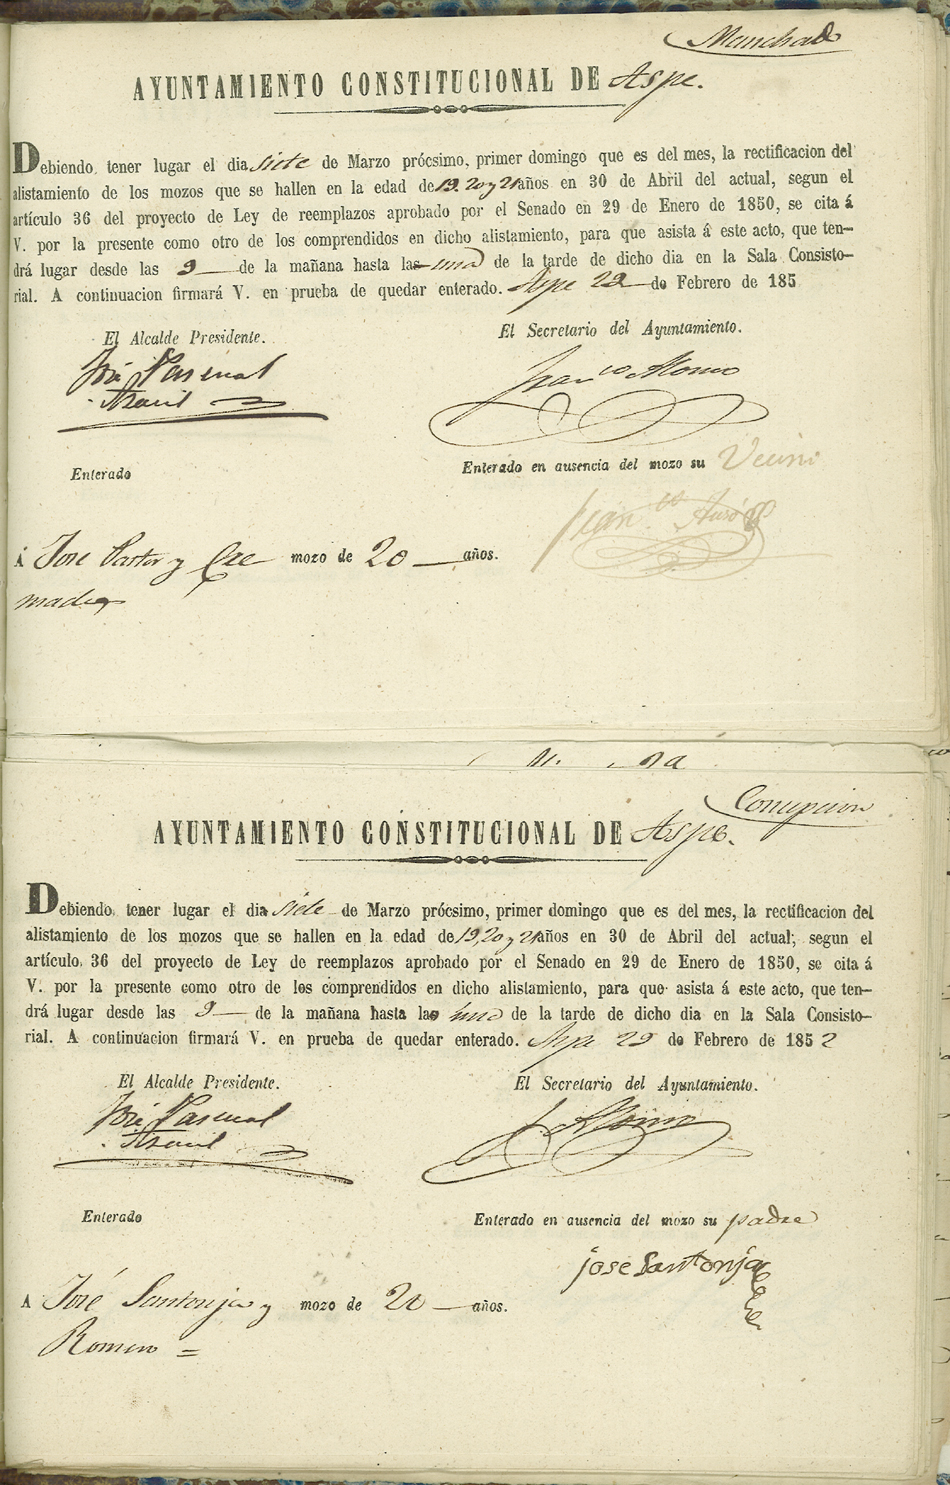 Manchado
AYUNTAMIENTO CONSTITUCIONAL DE Aspe.
Debiendo tener lugar el dia siete de Marzo prócsimo, primer domingo que es del mes, la rectificacion del
alistamiento de los mozos que se hallen en la edad de 19. 20 y 21 años en 30 de Abril del actual, segun el
artículo 36 del proyecto de Ley de reemplazos aprobado por el Senado en 29 de Enero de 1850, se cita á
V. por la presente como otro de los comprendidos en dicho alistamiento, para que asista á este acto, que ten-
drá lugar desde las 9 de la mañana hasta la una de la tarde de dicho dia en la Sala Consisto-
rial. A continuacion firmará V. en prueba de quedar enterado. Aspe 29 de Febrero de 185
El Alcalde Presidente.
El Secretario del Ayuntamiento.
José Pascual
Franco Alonso
Enterado
Enterado en ausencia del mozo su Vecino
Franco
Á José Pastor y Cre mozo de 20 años.
mades
Concepcion
AYUNTAMIENTO CONSTITUCIONAL DE Aspe.
Debiendo tener lugar el dia siete de Marzo prócsimo, primer domingo que es del mes, la rectificacion del
alistamiento de los mozos que se hallen en la edad de 19, 20 y 21 años en 30 de Abril del actual, segun el
artículo 36 del proyecto de Ley de reemplazos aprobado por el Senado en 29 de Enero de 1850, se cita á
V. por la presente como otro de los comprendidos en dicho alistamiento, para que asista á este acto, que ten-
drá lugar desde las 9 de la mañana hasta la una de la tarde de dicho dia en la Sala Consisto-
rial. A continuacion firmará V. en prueba de quedar enterado. Aspe 29 de Febrero de 1852
El Alcalde Presidente.
El Secretario del Ayuntamiento.
José Pascual
F. Alonso
Enterado
Enterado en ausencia del mozo su padre
jose Santonja
A José Santonja y mozo de 20 años.
Romero =